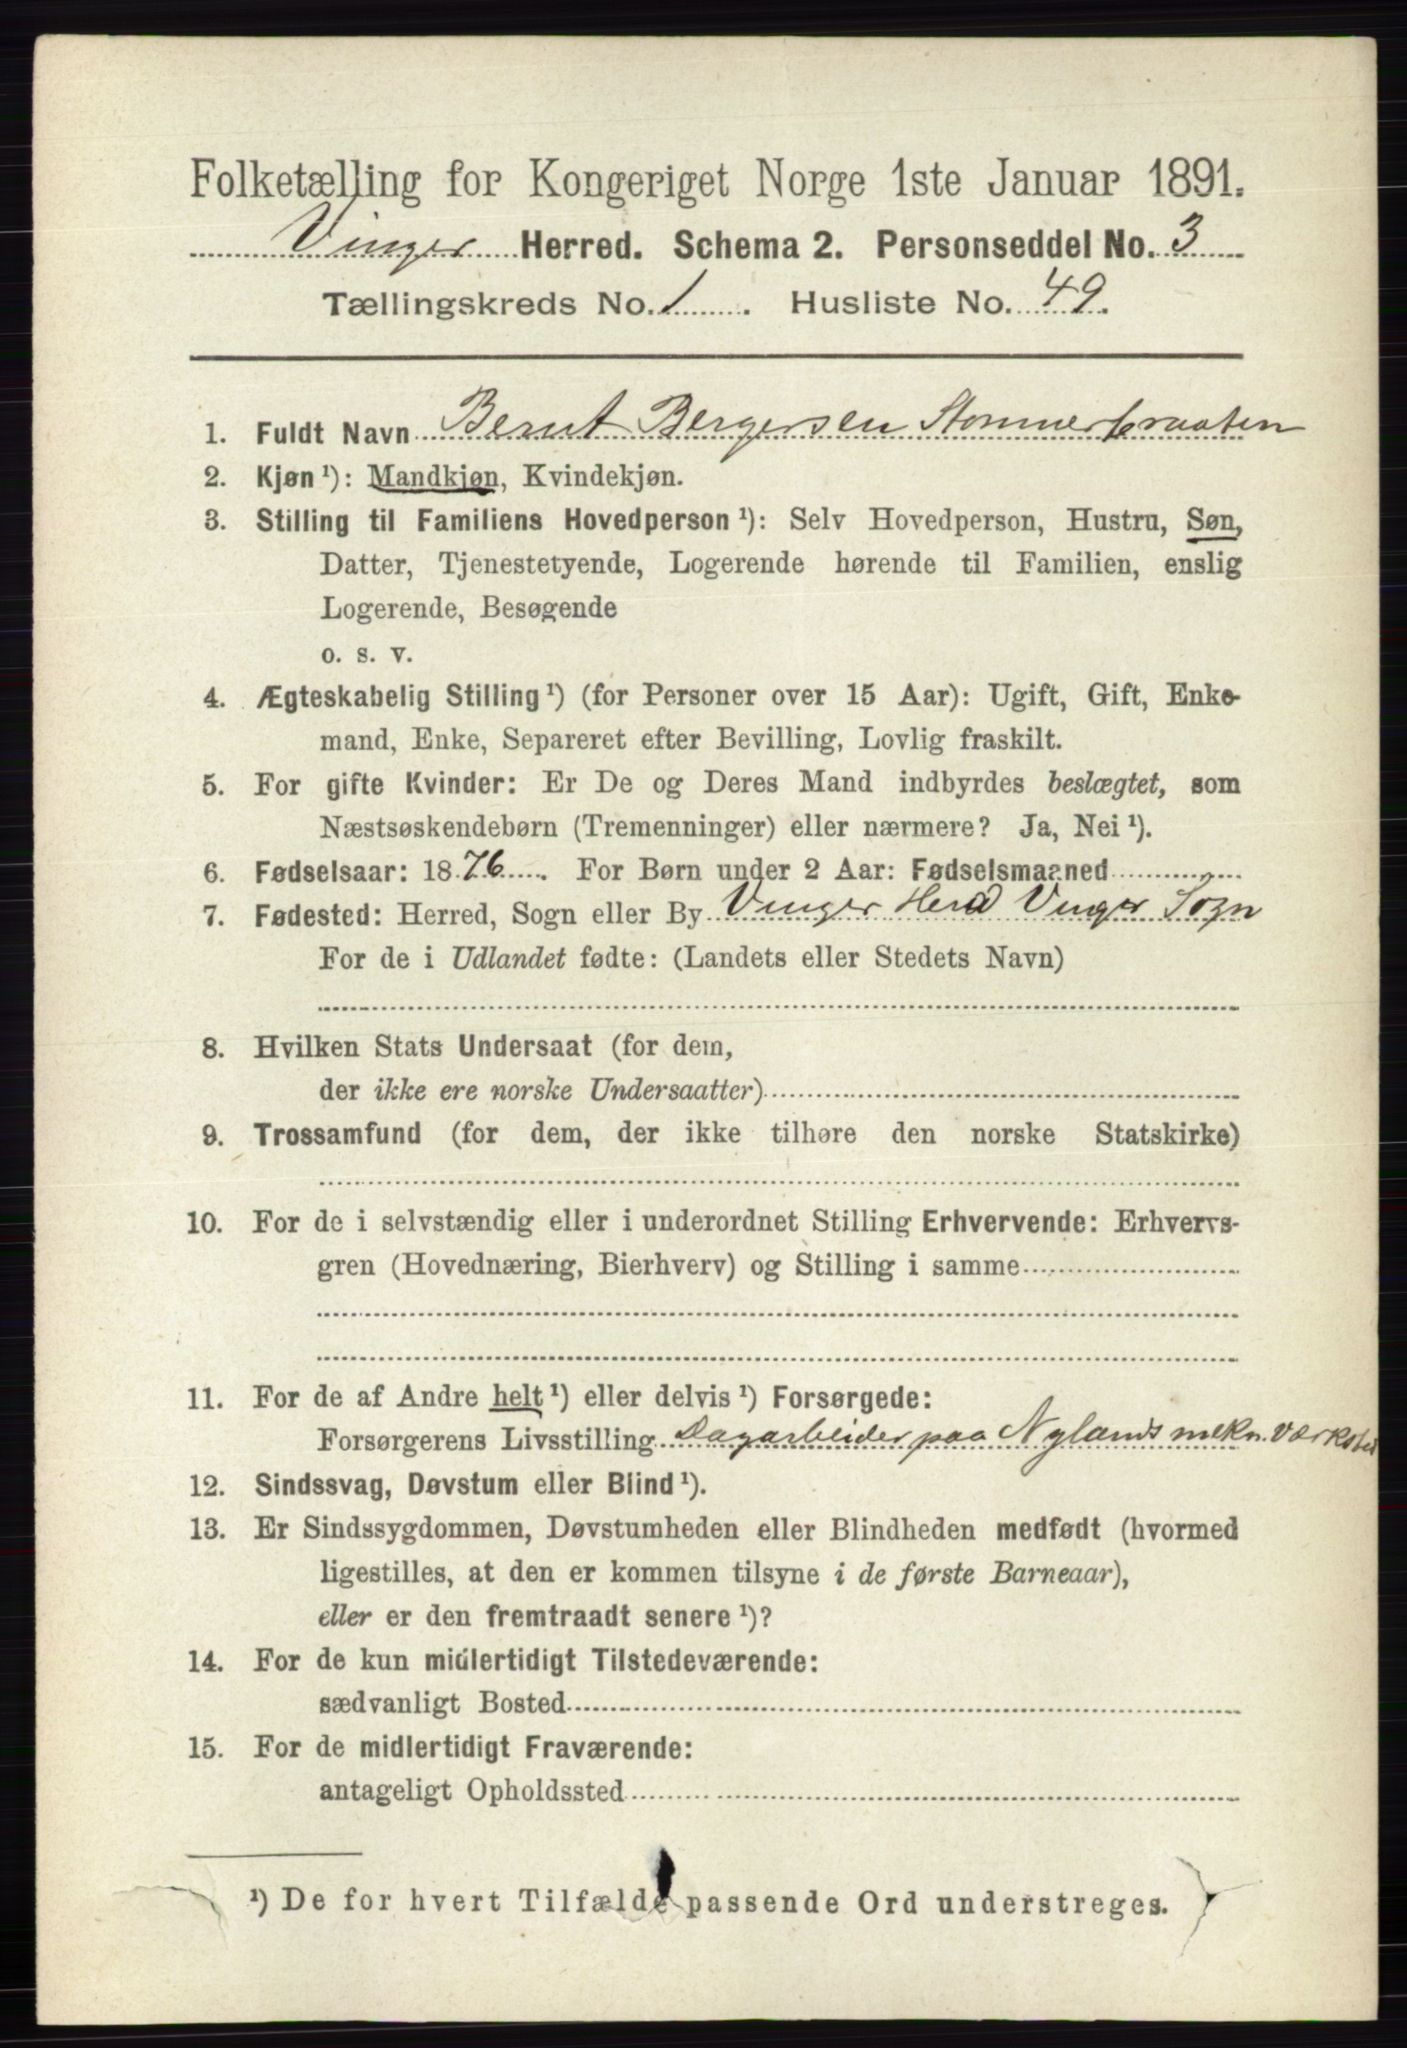 Folketælling for Kongeriget Norge 1ste Januar 1891.
Vinger Herred. Schema 2. Personseddel No. 3
Tællingskreds No. 1. Husliste No. 49.
1. Fuldt Navn Bernt Bergersen Stommerbraaten
2. Kjøn ¹): Mandkjøn, Kvindekjøn.
3. Stilling til Familiens Hovedperson ¹): Selv Hovedperson, Hustru, Søn,
Datter, Tjenestetyende, Logerende hørende til Familien, enslig
Logerende, Besøgende
o. s. v.
4. Ægteskabelig Stilling ¹) (for Personer over 15 Aar): Ugift, Gift, Enke-
mand, Enke, Separeret efter Bevilling, Lovlig fraskilt.
5. For gifte Kvinder: Er De og Deres Mand indbyrdes beslægtet, som
Næstsøskendebørn (Tremenninger) eller nærmere? Ja, Nei ¹).
6. Fødselsaar: 1876. For Børn under 2 Aar: Fødselsmaaned
7. Fødested: Herred, Sogn eller By Vinger Herd Vinger Sogn
For de i Udlandet fødte: (Landets eller Stedets Navn)
8. Hvilken Stats Undersaat (for dem,
der ikke ere norske Undersaatter)
9. Trossamfund (for dem, der ikke tilhøre den norske Statskirke)
10. For de i selvstændig eller i underordnet Stilling Erhvervende: Erhvervs-
gren (Hovednæring, Bierhverv) og Stilling i samme
11. For de af Andre helt ¹) eller delvis ¹) Forsørgede:
Forsørgerens Livsstilling Dagarbeider paa Nylands mekn. Værksted
12. Sindssvag, Døvstum eller Blind ¹).
13. Er Sindssygdommen, Døvstumheden eller Blindheden medfødt (hvormed
ligestilles, at den er kommen tilsyne i de første Barneaar),
eller er den fremtraadt senere ¹)?
14. For de kun midlertidigt Tilstedeværende:
sædvanligt Bosted
15. For de midlertidigt Fraværende:
antageligt Opholdssted
¹) De for hvert Tilfælde passende Ord understreges.